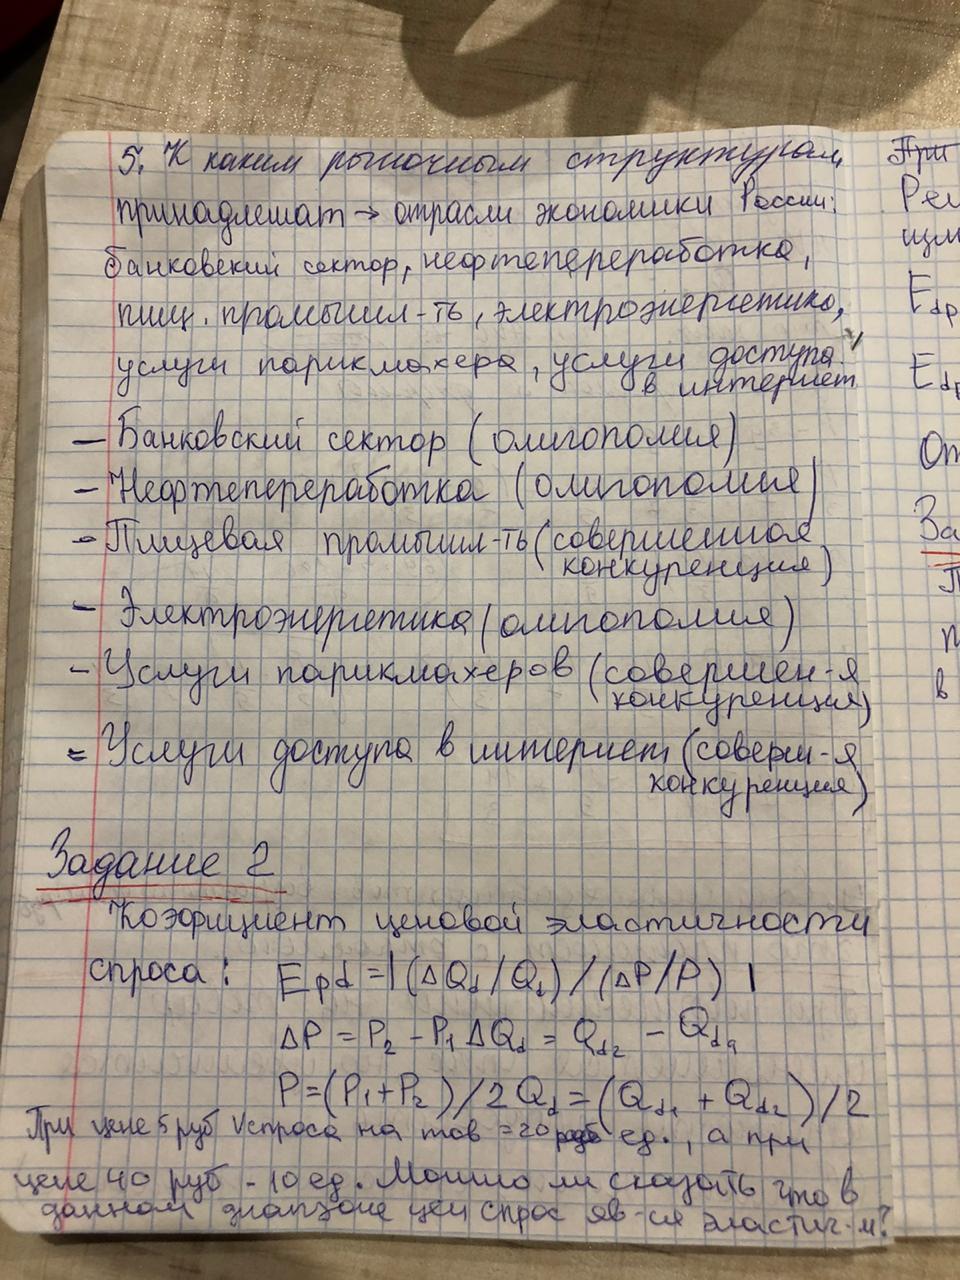 5. К каким рыночным структурам
принадлежат → отрасли экономики России:
банковский сектор, нефтепереработка,
пищ. промышл-ть, электроэнергетика,
услуги парикмахера, услуги доступа
в интернет
— Банковский сектор (олигополия)
– Нефтепереработка (олигополия)
– Пищевая промышл-ть (совершенная
конкуренция)
– Электроэнергетика (олигополия)
– Услуги парикмахеров (совершен-я
конкуренция)
= Услуги доступа в интернет (соверш-я
конкуренция)
Задание 2
Коэфициент ценовой эластичности
спроса: Epd = | (ΔQd/Qd) / (ΔP/P) |
ΔP = P2 - P1 ΔQd = Qd2 - Qd1
P = (P1+P2)/2 Qd = (Qd1 + Qd2)/2
При цене 5 руб V спроса на тов = 20 ед., а при
цене 40 руб - 10 ед. Можно ли сказать что в
данном диапазоне цен спрос яв-ся эластич-м?
При
Реш
Edp
Ed
От
За
П
п
в